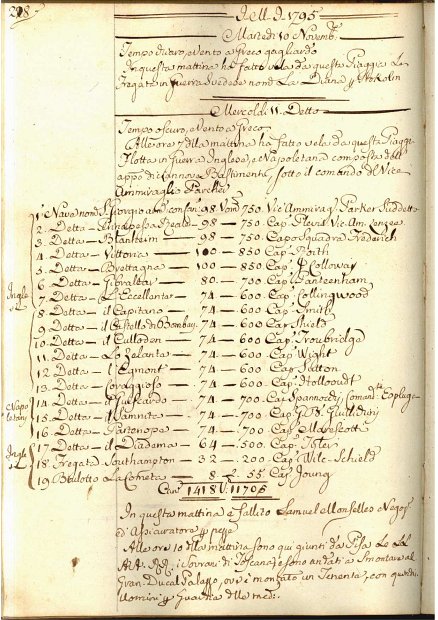 208
A. M. D. 1795
Martedi 10 Novemb.
Tempo chiaro, e vento a Greco gagliardo
In questa mattina ha fatto vela da questa Piaggia Le
Fregate in Guerra Svedese nom. La Diana, p. Stokolm
Mercoldi 11 Detto
Tempo oscuro, e Vento a Greco
Alle ore 7 d. la mattina ha fatto vela da questa Piaggi.
Flotta in Guerra Inglese, e Napoletana composta dell'
app.o di Cannoni, e Bastimenti, sotto il comando del Vice
Ammiraglio Parcher
1. Nave nom. S. Giorgio 98 750. Vic' Ammirag. Parker Suddetto
2. Detta Principessa Reale 98 750 Cap.
3. Detta Blanheim 98 750 Capo Squadra
4. Detta Vittoria 100 850 Cap.
5. Detta Brettagna 100 850 Cap. Colloway
6. Detta Gibraltar 80 700 Cap.
7. Detta L'Eccellente 74 600 Cap. Collingwood
8. Detta il Capitano 74 600 Cap. Smith
9. Detta il Castello di Bombay 74 600 Cap. Shield
10. Detta il Culloden 74 600 Cap. Troubridge
11. Detta Lo Zelante 74 600 Cap. Wight
12. Detta L'Egmont 74 600 Cap. Sutton
13. Detta Coraggioso 74 600 Cap.
14. Detta il Guiscardo 74 700 Cap.
15. Detta il Sannita 74 700 Cap.
16. Detta Partenope 74 700 Cap. Marescotti
17. Detta il Diadema 64 500 Cap.
18. Fregata Southampton 32 200 Cap.
19. Beulotto La Cometa 8 55 Cap. Joung
Ingle
si
Napo
letani
Ingle
si
Can. 1418 U. 11705
In questa mattina è fallito Samuel Monselles Negoz.
ed Assicuratore
Alle ore 10 d. la mattina sono qui giunti da Pisa Le LL
AA. RR. i Sovrani di Toscana, e sono andati a smontare al
Gran Ducal Palazzo, ove è montato un Tenente, con
uomini p. Guardia d. le med.i